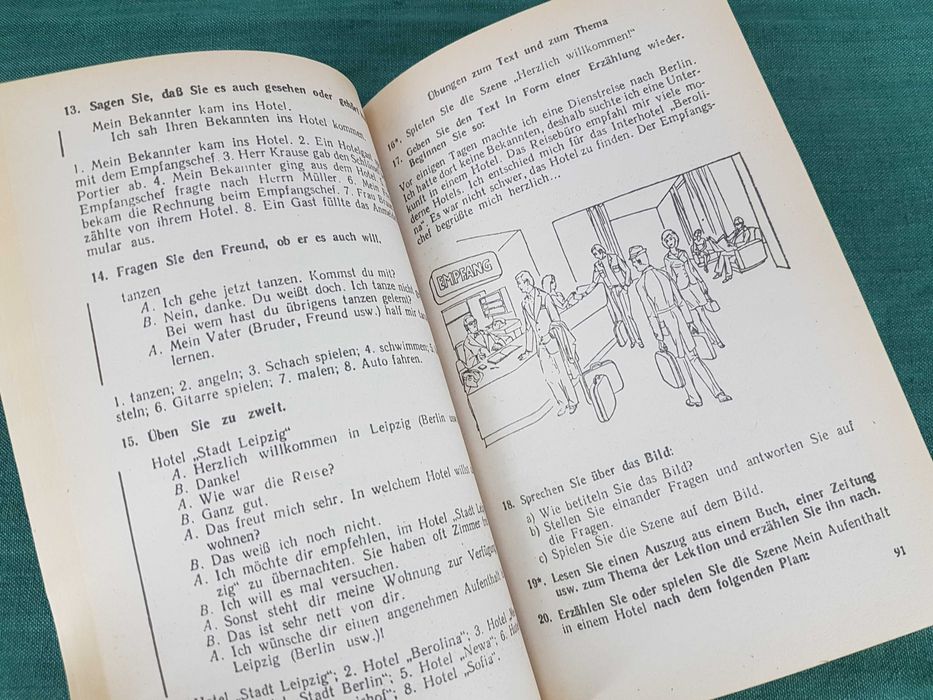 13. Sagen Sie, daß Sie es auch gesehen oder
Mein Bekannter kam ins Hotel.
Ich sah Ihren Bekannten ins Hotel kommen.
1. Mein Bekannter kam ins Hotel. 2. Ein
mit dem Empfangschef. 3. Herr Krause gab den
Portier ab. 4. Mein Bekannter ging aus dem
Empfangschef fragte nach Herrn Müller. 6. Mein
bekam die Rechnung beim Empfangschef. 7. Frau
zählte von ihrem Hotel. 8. Ein Gast füllte das
mular aus.
14. Fragen Sie den Freund, ob er es auch will.
tanzen
A. Ich gehe jetzt tanzen. Kommst du mit?
B. Nein, danke. Du weißt doch. Ich tanze
Bei wem hast du übrigens tanzen gelernt?
A. Mein Vater (Bruder, Freund usw.) half mir
lernen.
1. tanzen; 2. angeln; 3. Schach spielen; 4. schwimmen; 5.
steln; 6. Gitarre spielen; 7. malen; 8. Auto fahren.
15. Üben Sie zu zweit.
Hotel „Stadt Leipzig"
A. Herzlich willkommen in Leipzig (Berlin
B. Danke!
A. Wie war die Reise?
B. Ganz gut.
A. Das freut mich sehr. In welchem Hotel willst
wohnen?
B. Das weiß ich noch nicht.
A. Ich möchte dir empfehlen, im Hotel „Stadt
zig" zu übernachten. Sie haben oft Zimmer
B. Ich will es mal versuchen.
A. Sonst steht dir meine Wohnung zur Verfügung
B. Das ist sehr nett von dir.
A. Ich wünsche dir einen angenehmen Aufenthalt
Leipzig (Berlin usw.)!
Hotel „Stadt Leipzig"; 2. Hotel „Berolina"; 3. Hotel
Stadt Berlin"; 5. Hotel „Newa"; 6.
8. Hotel „Sofia".
Übungen zum Text und zum Thema
16*. Spielen Sie die Szene „Herzlich willkommen!"
17. Geben Sie den Text in Form einer Erzählung wieder.
Beginnen Sie so:
Vor einigen Tagen machte ich eine Dienstreise nach Berlin.
Ich hatte dort keine Bekannten, deshalb suchte ich eine Unter-
kunft in einem Hotel. Das Reisebüro empfahl mir viele mo-
derne Hotels. Ich entschied mich für das Interhotel „Beroli-
na". Es war nicht schwer, das Hotel zu finden. Der Empfangs-
chef begrüßte mich herzlich...
EMPFANG
18. Sprechen Sie über das Bild:
a) Wie betiteln Sie das Bild?
b) Stellen Sie einander Fragen und antworten Sie auf
die Fragen.
c) Spielen Sie die Szene auf dem Bild.
19*. Lesen Sie einen Auszug aus einem Buch, einer Zeitung
usw. zum Thema der Lektion und erzählen Sie ihn nach.
20. Erzählen Sie oder spielen Sie die Szene Mein Aufenthalt
in einem Hotel nach dem folgenden Plan:
91